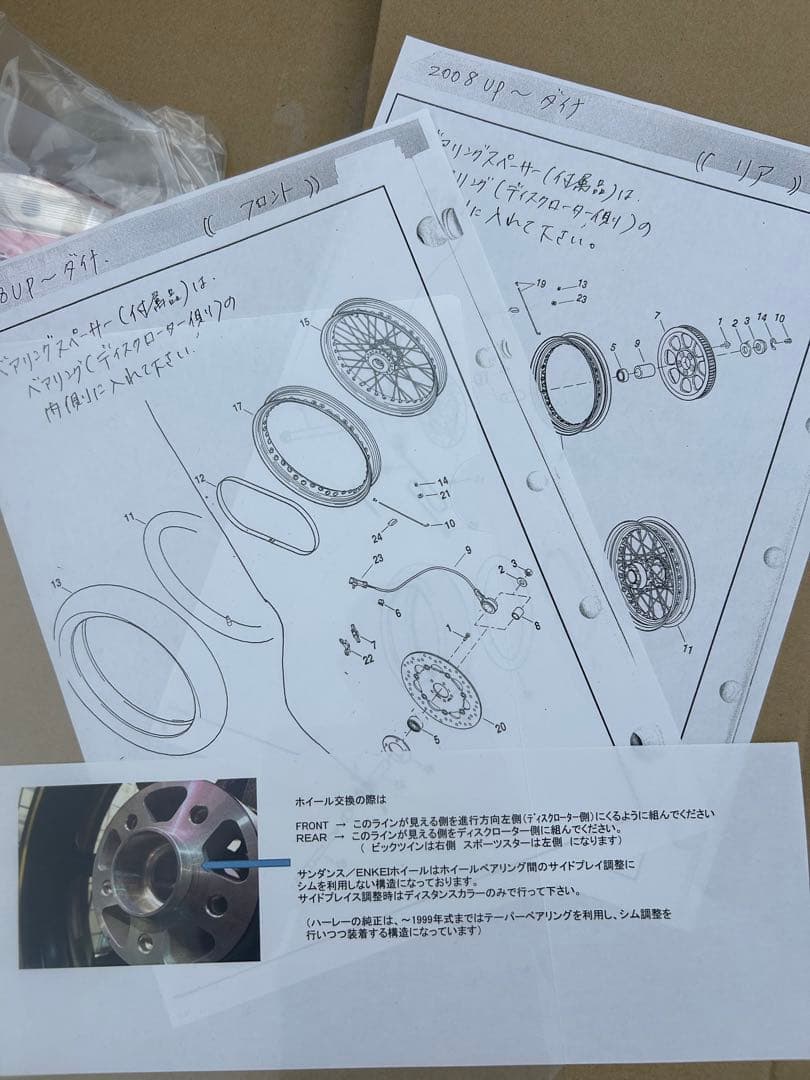 2008 UP～ ダイナ
(( リア ))
アリングスペーサー(付属品)は、
リング(ディスクローター側)の
に入れて下さい。
19
13
23
7
1
2
3
14
10
5
9
11
8 UP～ダイナ.
(( フロント ))
ベアリングスペーサー(付属品)は
ベアリング(ディスクローター側)の
内側に入れて下さい.
15
17
12
14
21
11
24
10
13
23
9
2
3
6
1
7
22
6
20
5
ホイール交換の際は
FRONT → このラインが見える側を進行方向左側(ディスクローター側)にくるように組んでください
REAR → このラインが見える側をディスクローター側に組んでください。
( ビックツインは右側 スポーツスターは左側 になります)
サンダンス／ENKEIホイールはホイールベアリング間のサイドプレイ調整に
シムを利用しない構造になっております。
サイドプレイス調整時はディスタンスカラーのみで行って下さい。
(ハーレーの純正は、～1999年式まではテーパーベアリングを利用し、シム調整を
行いつつ装着する構造になっています)